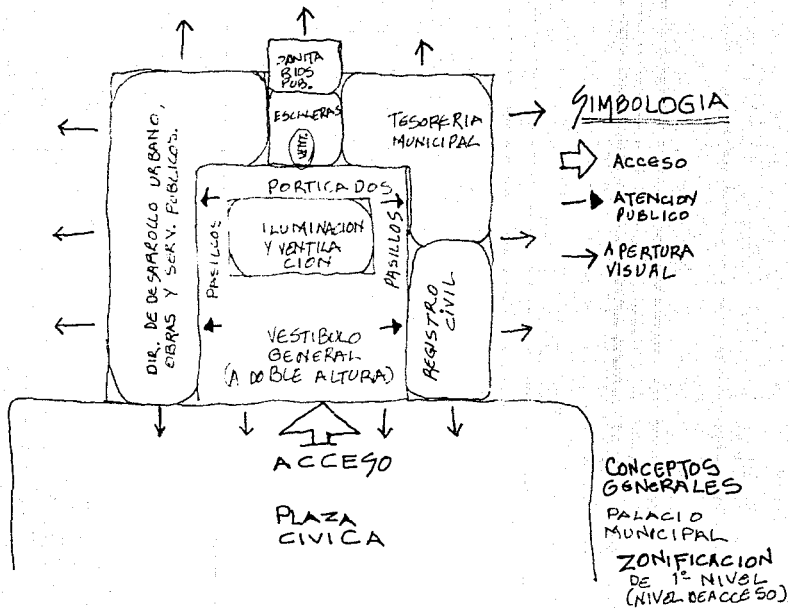 SANITA
RIOS
PUB.
ESCALERAS
VENT.
TESORERIA
MUNICIPAL
DIR. DE DESARROLLO URBANO,
OBRAS Y SERV. PUBLICOS.
PORTICADOS
PASILLOS
ILUMINACION
Y VENTILA
CION
PASILLOS
VESTIBULO
GENERAL
(A DOBLE ALTURA)
REGISTRO
CIVIL
ACCESO
PLAZA
CIVICA
SIMBOLOGIA
ACCESO
ATENCION
PUBLICO
APERTURA
VISUAL
CONCEPTOS
GENERALES
PALACIO
MUNICIPAL
ZONIFICACION
DE 1º NIVEL
(NIVEL DE ACCESO)